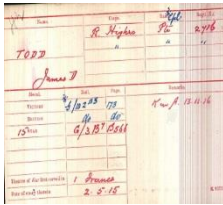 Name. Corps. Rank. Regtl. No.
R. Highrs Pte 2716
TODD " "
James D
Medal. Roll. Page. Remarks.
Victory 173 K. in A. 13.11.16
British do do
15 Star G/3 B
Theatre of War first served in 1 France
Date of entry therein 2.5.15